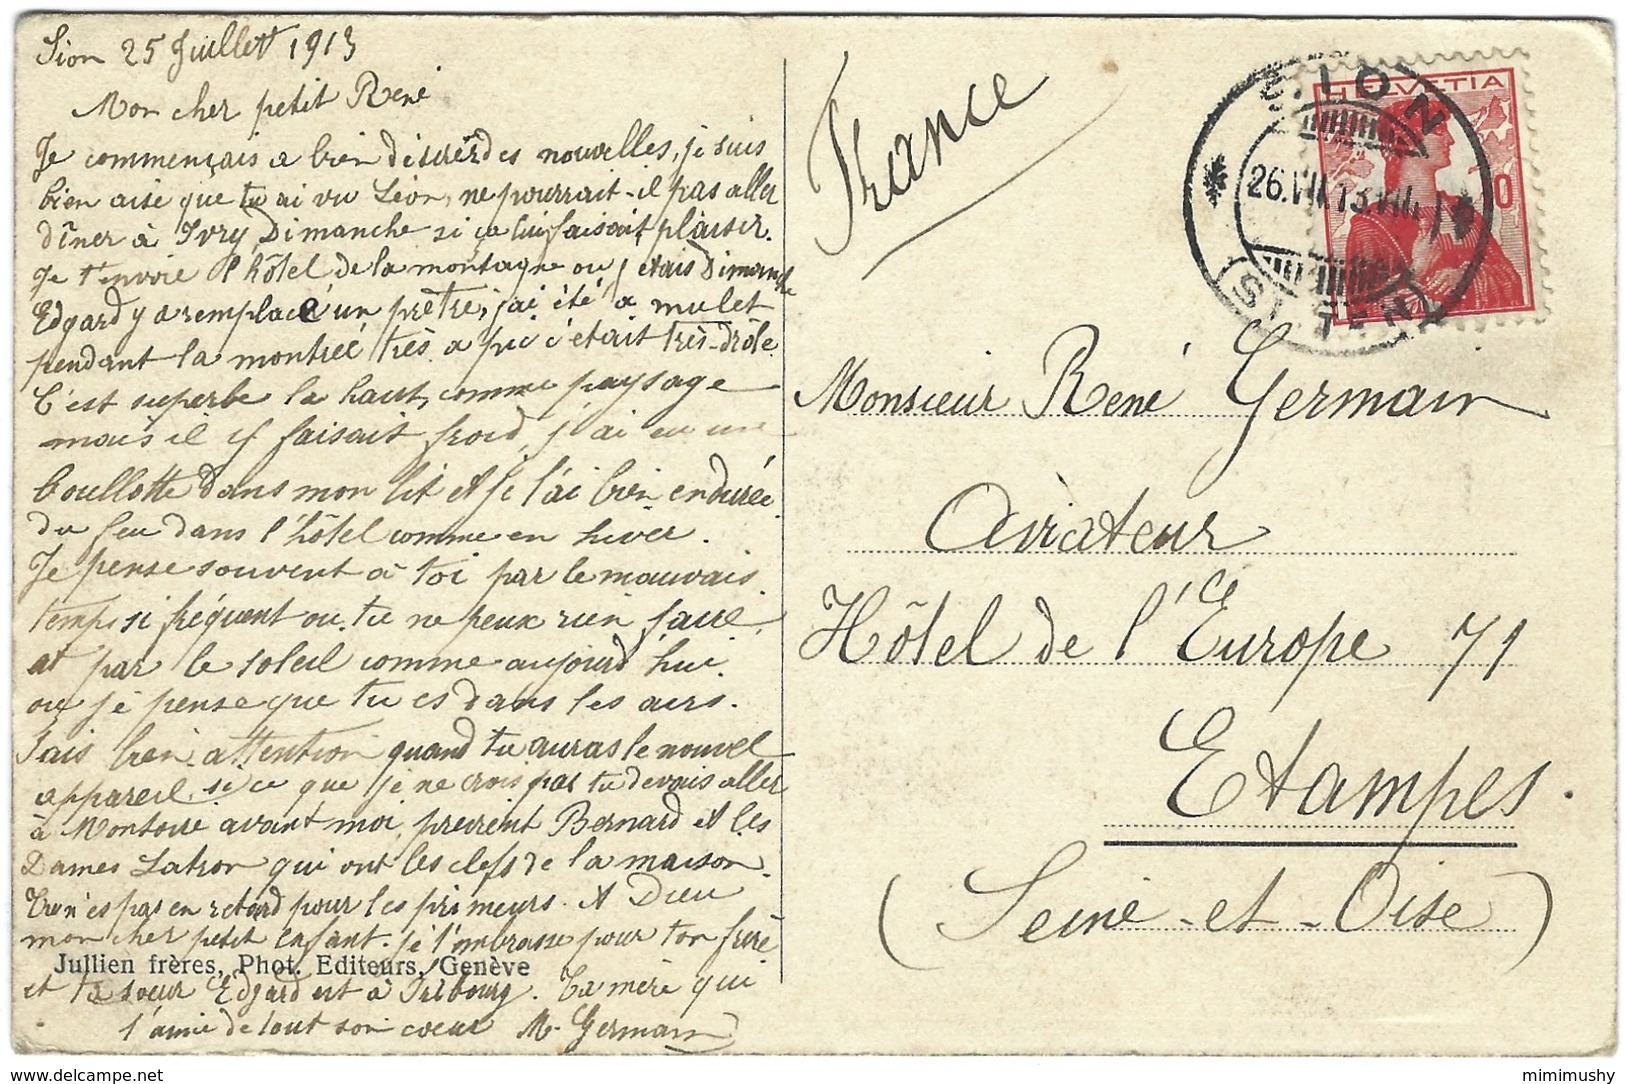 Sion 25 Juillet 1913
Mon cher petit René
Je commençais a bien désirer des nouvelles, je suis
bien aise que tu ai vu Léon, ne pourrait-il pas aller
dîner à Ivry Dimanche si ça lui faisait plaisir.
Je t'envoie l'hôtel de la montagne ou j'etais Dimanche
Edgard y a remplacé un prêtre, j'ai été a mulet
pendant la montée très a pic c'était très-drôle
C'est superbe la haut, comme paysage
mais il y faisait froid, j'ai eu une
boullotte dans mon lit et je l'ai bien endurée
du feu dans l'hôtel comme en hiver.
Je pense souvent à toi par le mauvais
temps si fréquent ou tu ne peux rien faire,
et par le soleil comme aujourd'hui
ou je pense que tu es dans les airs.
Fais bien attention quand tu auras le nouvel
appareil, si ce que je ne crois pas tu devais aller
à Montoire avant moi, previent Bernard et les
Dames Latron qui ont les clefs de la maison.
Tu n'es pas en retard pour les primeurs. A Dieu
mon cher petit enfant. je t'embrasse pour ton frère
Jullien frères, Phot. Editeurs, Genève
et ta soeur Edgard est à Fribourg. Ta mère qui
t'aime de tout son coeur M. Germain
France
HELVETIA
10
SION
26.VII.13.VIII
SITTEN
Monsieur René Germain
Aviateur
Hôtel de l'Europe 71
Etampes.
(Seine-et-Oise)
delcampe.net
mimimushy